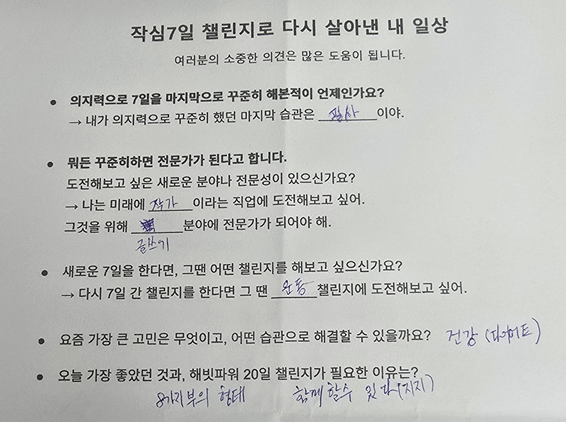 작심7일 챌린지로 다시 살아낸 내 일상
여러분의 소중한 의견은 많은 도움이 됩니다.
• 의지력으로 7일을 마지막으로 꾸준히 해본적이 언제인가요?
→ 내가 의지력으로 꾸준히 했던 마지막 습관은 필사 이야.
• 뭐든 꾸준히하면 전문가가 된다고 합니다.
도전해보고 싶은 새로운 분야나 전문성이 있으신가요?
→ 나는 미래에 작가 이라는 직업에 도전해보고 싶어.
그것을 위해 분야에 전문가가 되어야 해.
글쓰기
• 새로운 7일을 한다면, 그땐 어떤 챌린지를 해보고 싶으신가요?
→ 다시 7일 간 챌린지를 한다면 그 땐 운동 챌린지에 도전해보고 싶어.
• 요즘 가장 큰 고민은 무엇이고, 어떤 습관으로 해결할 수 있을까요? 건강 (다이어트)
• 오늘 가장 좋았던 것과, 해빗파워 20일 챌린지가 필요한 이유는?
8가지 부의 형태 함께 할수 있다 (지지)